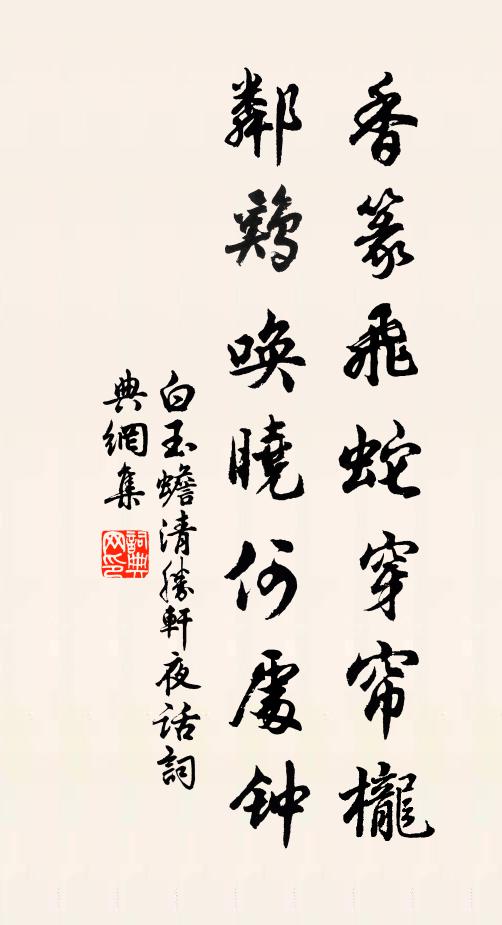 香篆飛蛇穿帘櫳
鄰鷄唤曉何處钟
白玉蟾清勝軒夜话詞
典網集
詞典
网印